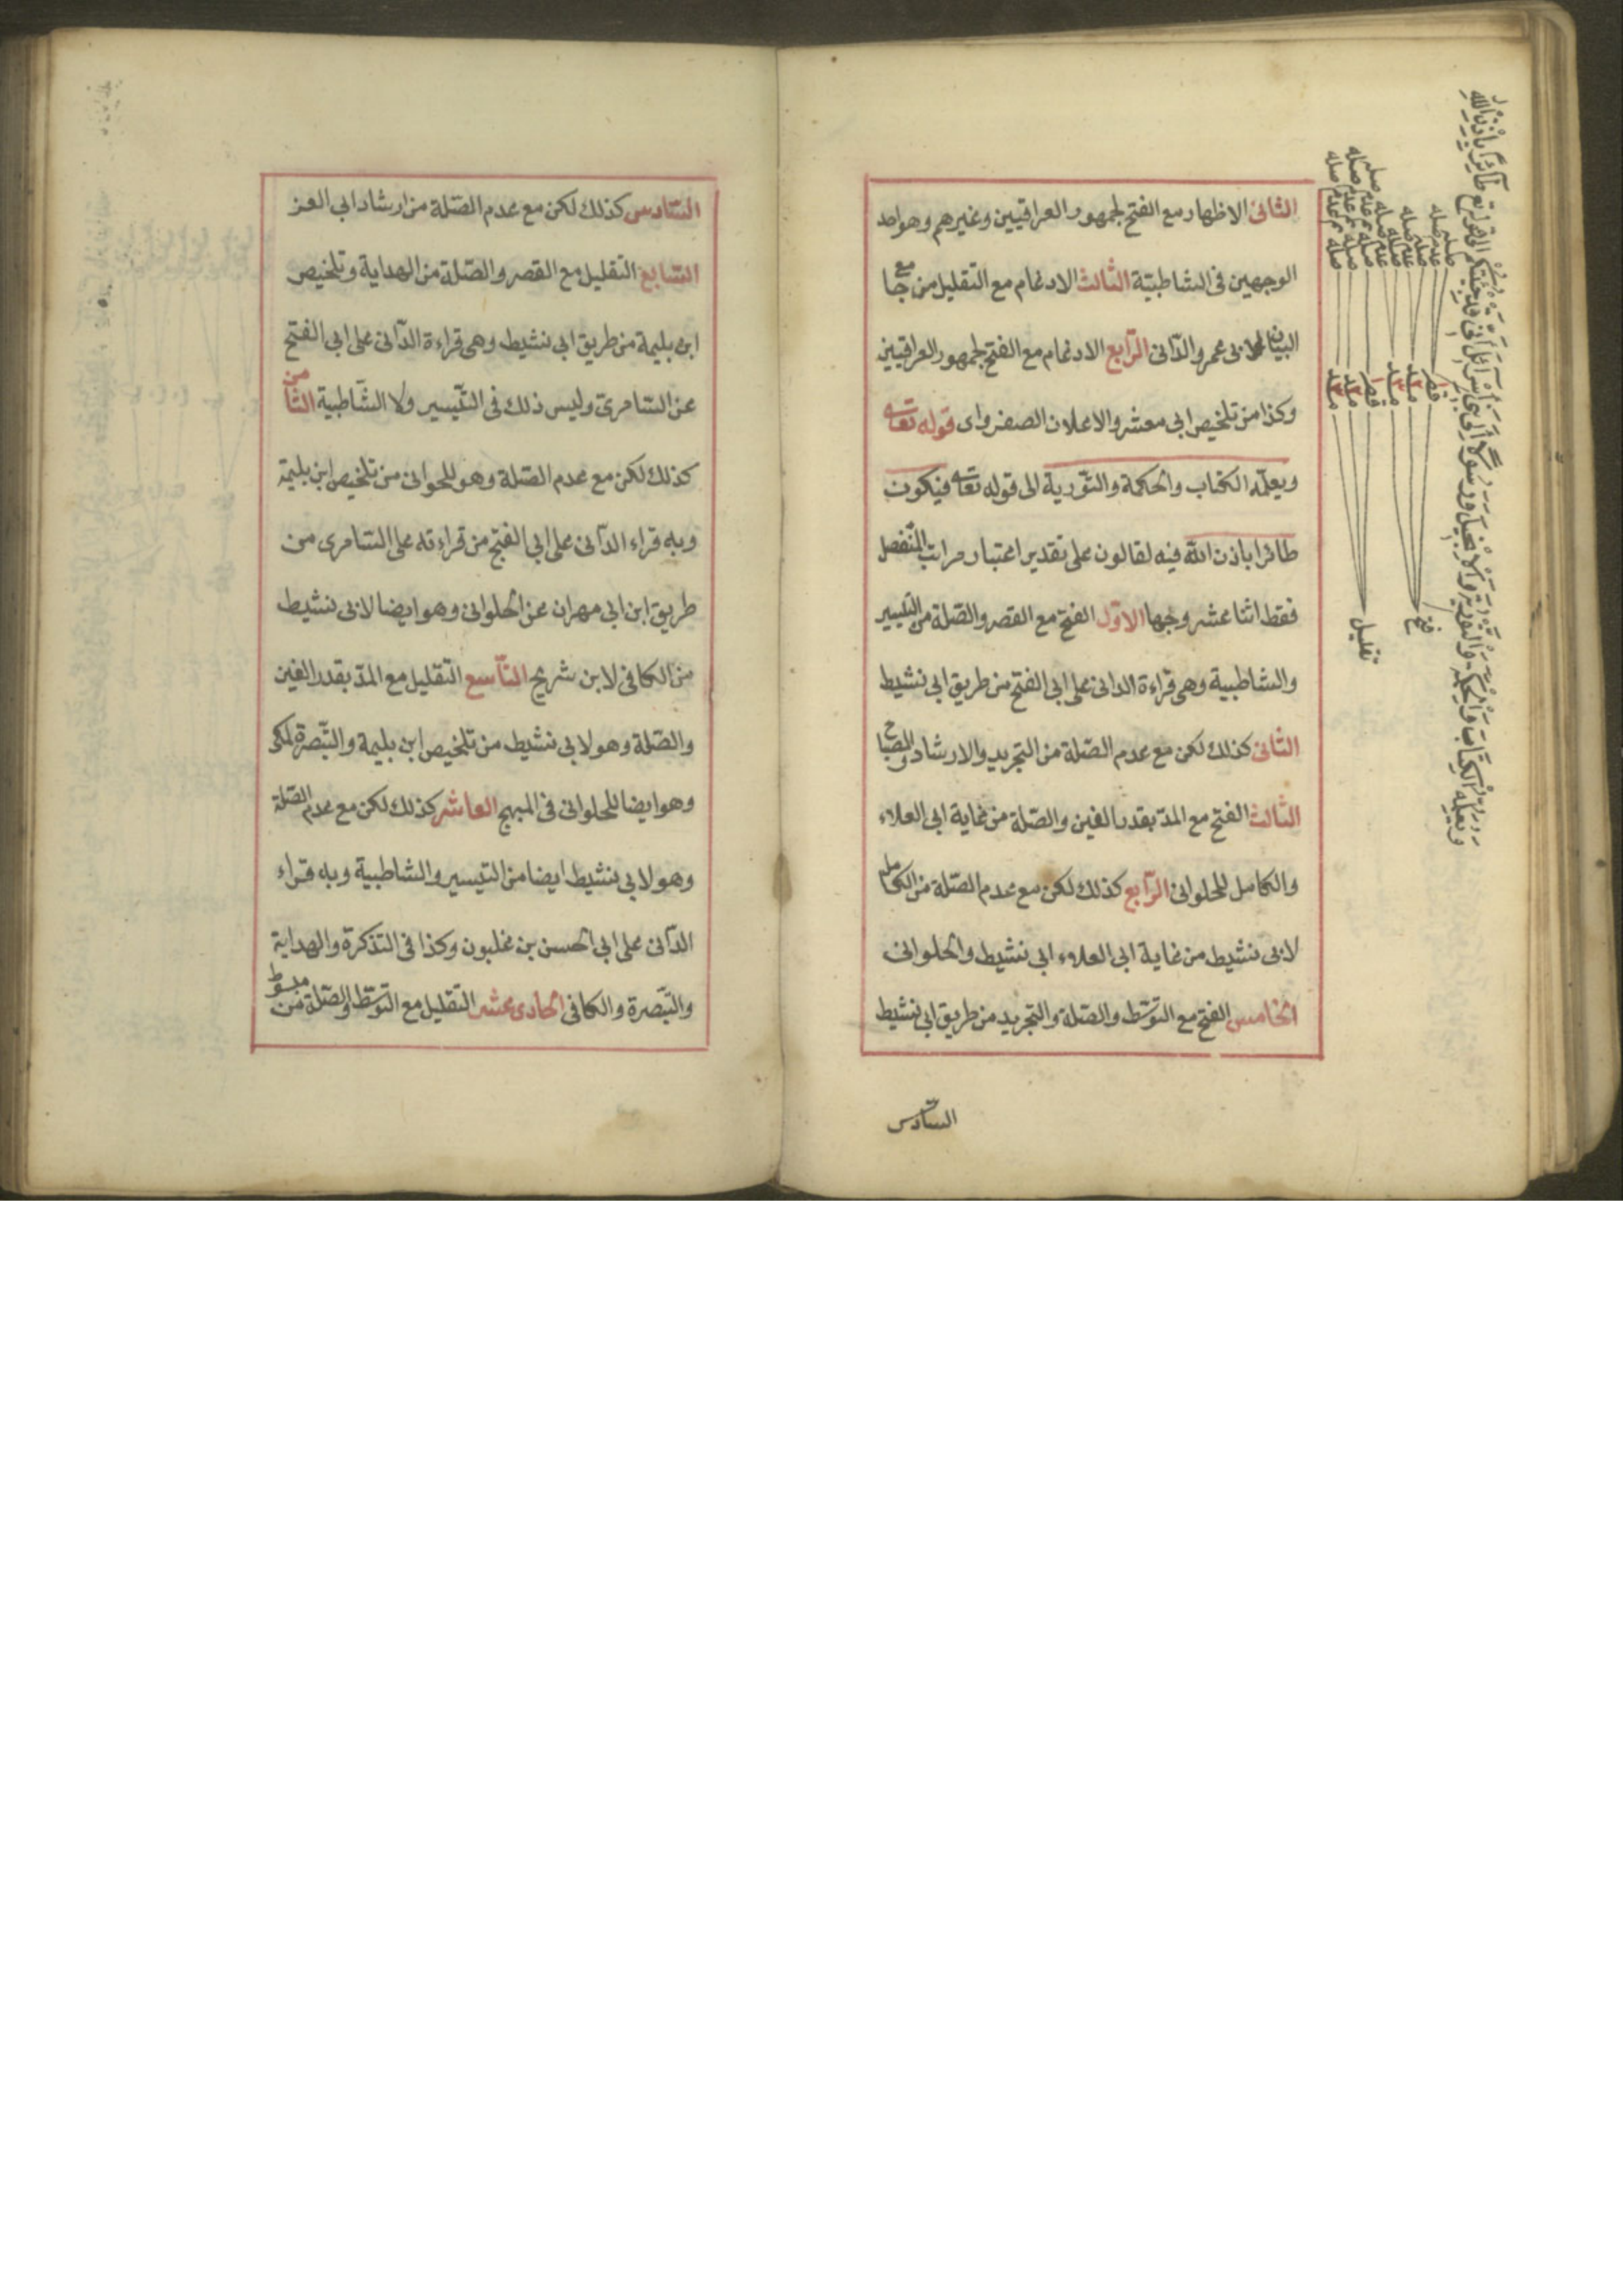 الثانى الاظهار مع الفتح لجمهور العراقيين وغيرهم وهو احد
الوجهين فى الشاطبيّة الثالث الادغام مع التقليل من جامع
البيان لابى عمرو الدّانى الرّابع الادغام مع الفتح لجمهور العراقيين
وكذا من تلخيص ابى معشر والاعلان الصفراوى قوله تعالى
ويعلّمه الكتاب والحكمة والتّورية الى قوله تعالى فيكون
طائرا باذن الله فيه لقالون على تقدير اعتبار مراتب المنفصل
فقط اثنا عشر وجها الاوّل الفتح مع القصر والصّلة من التيسير
والشاطبية وهى قراءة الدانى على ابى الفتح من طريق ابى نشيط
الثانى كذلك لكن مع عدم الصّلة من التجريد والارشاد والمصباح
الثالث الفتح مع المدّ بقدر الفين والصّلة من غاية ابى العلاء
والكامل للحلوانى الرّابع كذلك لكن مع عدم الصّلة من الكامل
لابى نشيط من غاية ابى العلاء ابى نشيط والحلوانى
الخامس الفتح مع التوسّط والصّلة والتجريد من طريق ابى نشيط
السّادس
ويعلمه الكتاب والحكمة والتورية والانجيل ورسولا الى بنى اسرائيل انى قد جئتكم الى قوله تع طائرا باذن الله
صله
عدم صله
صله
عدم صله
صله
عدم صله
قصر
مد
مد
فتح
قصر
مد
مد
تقليل
السّادس كذلك لكن مع عدم الصّلة من ارشاد ابى العز
السّابع التقليل مع القصر والصّلة من الهداية وتلخيص
ابن بليمة من طريق ابى نشيط وهى قراءة الدّانى على ابى الفتح
عن السّامرىّ وليس ذلك فى التّيسير ولا الشّاطبية الثامن
كذلك لكن مع عدم الصّلة وهو للحوانى من تلخيص ابن بليمة
وبه قراء الدّانى على ابى الفتح من قراءته على السّامرى من
طريق ابن ابى مهران عن الحلوانى وهو ايضا لابى نشيط
من الكافى لابن شريح التّاسع التّقليل مع المدّ بقدر الفين
والصّلة وهو لابى نشيط من تلخيص ابن بليمة والتّبصرة لمكى
وهو ايضا للحلوانى فى المبهج العاشر كذلك لكن مع عدم الصّلة
وهو لابى نشيط ايضا من التيسير والشاطبية وبه قراء
الدّانى على ابى الحسن بن غلبون وكذا فى التذكرة والهداية
والتّبصرة والكافى الحادى عشر التقليل مع التوسّط والصّلة من